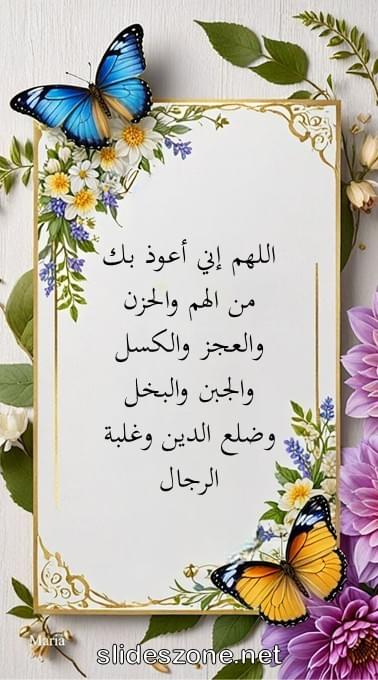 اللهم إني أعوذ بك
من الهم والحزن
والعجز والكسل
والجبن والبخل
وضلع الدين وغلبة
الرجال
Maria
slideszone.net